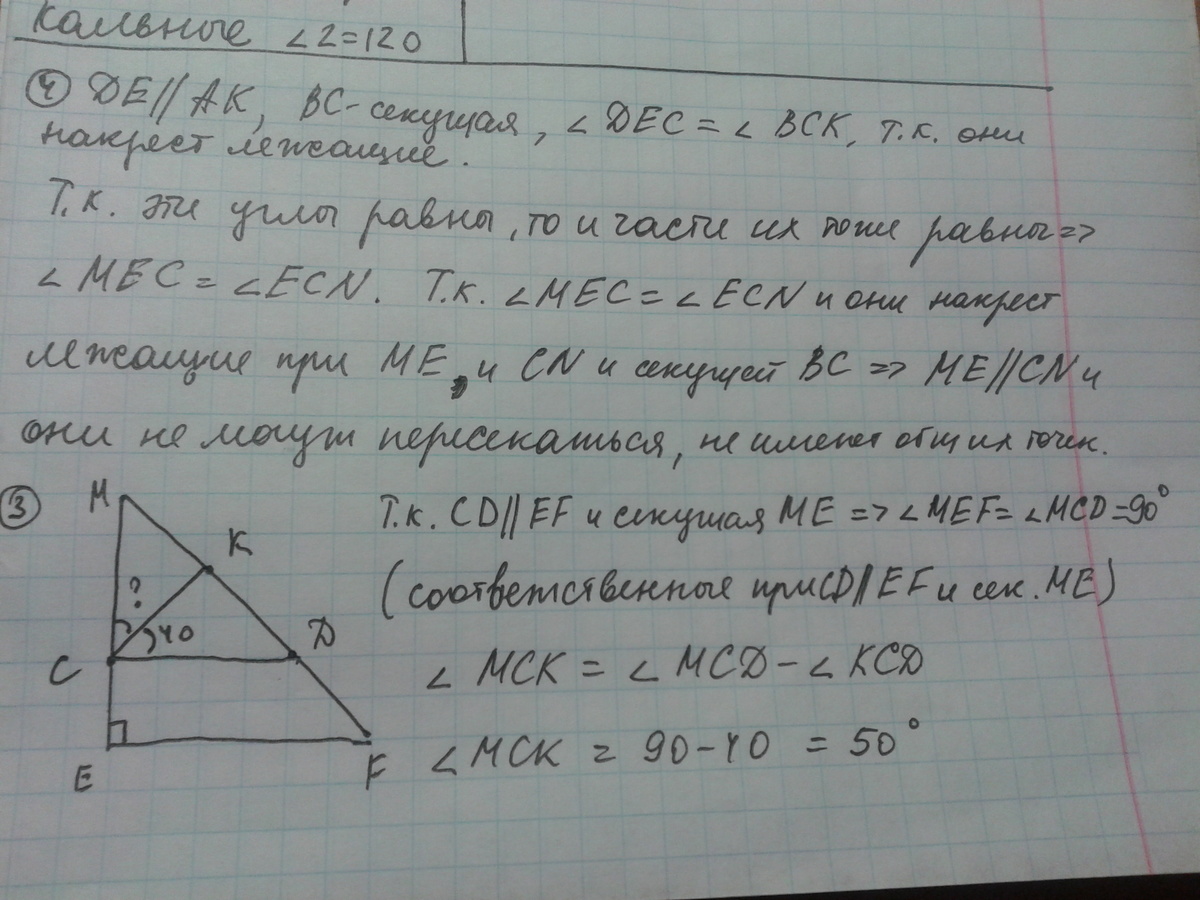 кальные ∠2=120
④ DE//AK, BC-секущая, ∠DEC=∠BCK, т.к. они
накрест лежащие.
Т.к. эти углы равны, то и части их тоже равны=>
∠MEC=∠ECN. Т.к. ∠MEC=∠ECN и они накрест
лежащие при ME, и CN и секущей BC => ME//CN и
они не могут пересекаться, не имеют общих точек.
③
M
K
?
40
D
C
E
F
Т.к. CD//EF и секущая ME => ∠MEF=∠MCD=90°
(соответственные при CD//EF и сек. ME)
∠MCK = ∠MCD-∠KCD
∠MCK = 90-40 = 50°